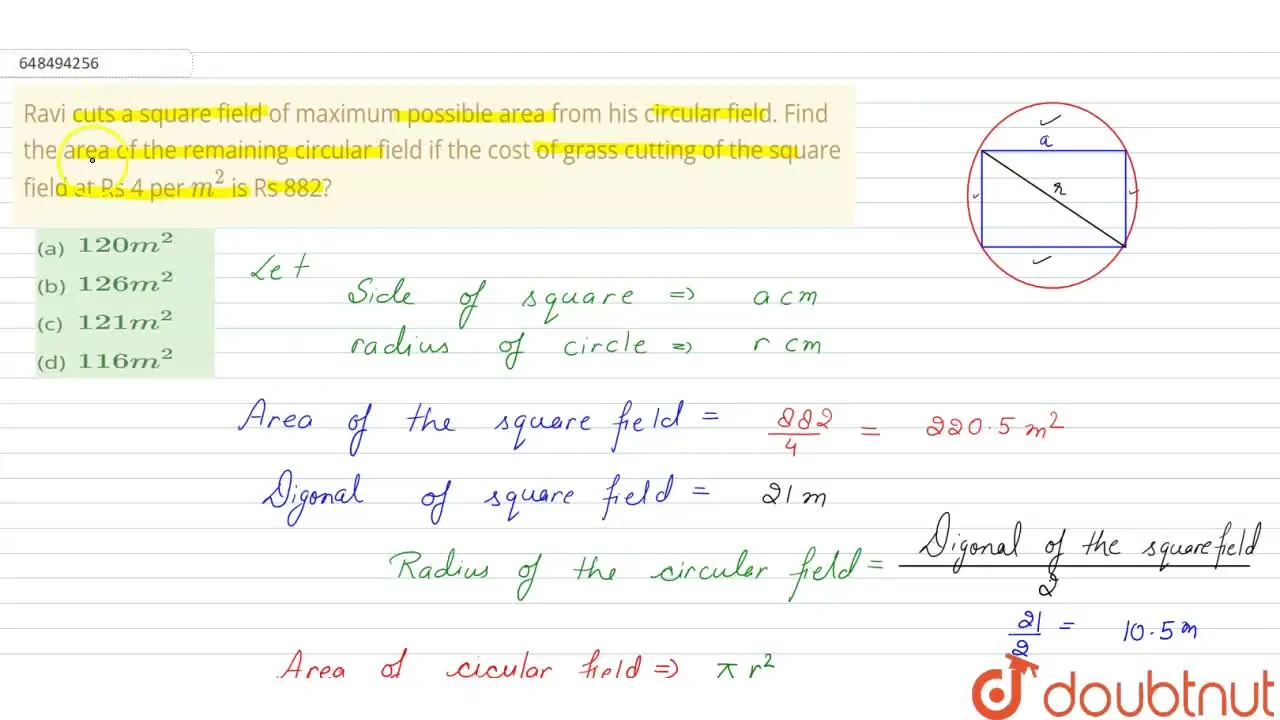 648494256
Ravi cuts a square field of maximum possible area from his circular field. Find
the area of the remaining circular field if the cost of grass cutting of the square
field at Rs 4 per m² is Rs 882?
(a) 120m²
(b) 126m²
(c) 121m²
(d) 116m²
a
r
Let
Side of square => a cm
radius of circle => r cm
Area of the square field = 882/4 = 220.5 m²
Digonal of square field = 21 m
Radius of the circular field = Digonal of the square field / 2
21/2 = 10.5 m
Area of cicular field => π r²
doubtnut